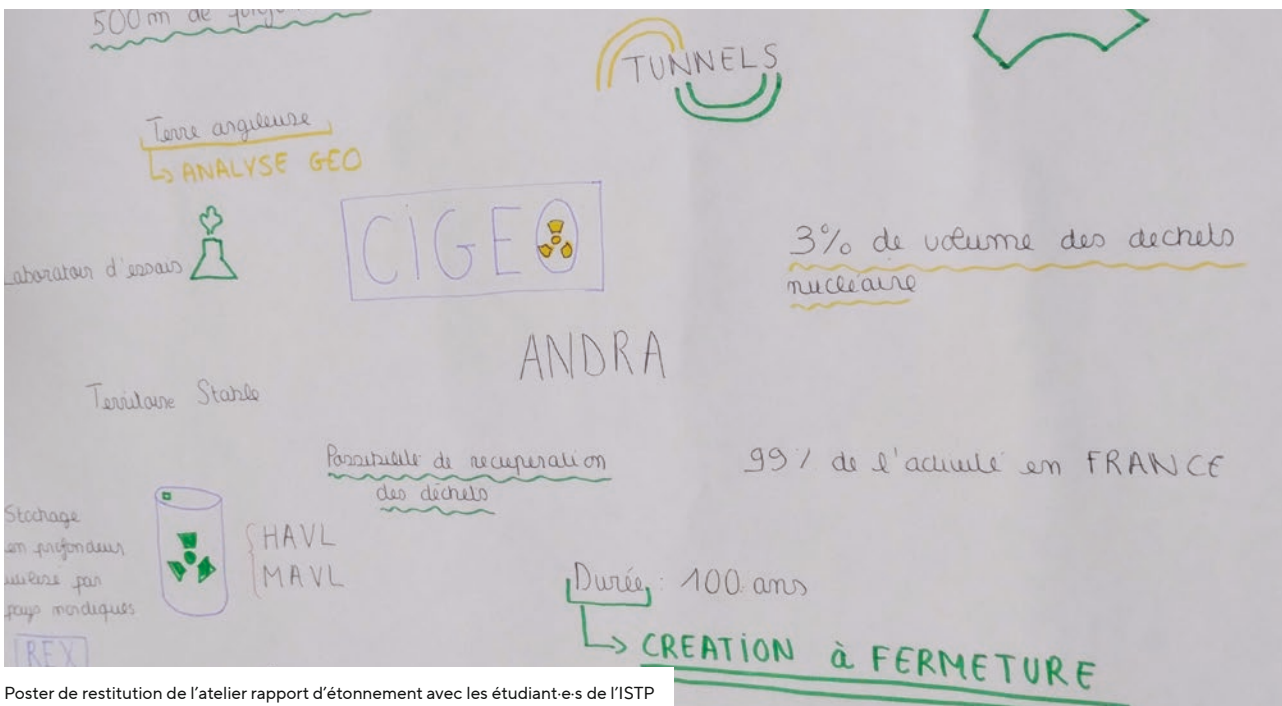 500 m de
TUNNELS
Terre argileuse
↳ ANALYSE GEO
Laboratoir d'essais
CIGEO
3% de volume des dechets
nucléaire
ANDRA
Territoire Stable
Possibilité de recuperation
des déchets
99% de l'activité en FRANCE
Stockage
en profondeur
utilisé par
pays nordiques
HAVL
MAVL
REX
Durée : 100 ans
↳ CREATION à FERMETURE
Poster de restitution de l'atelier rapport d'étonnement avec les étudiant·e·s de l'ISTP